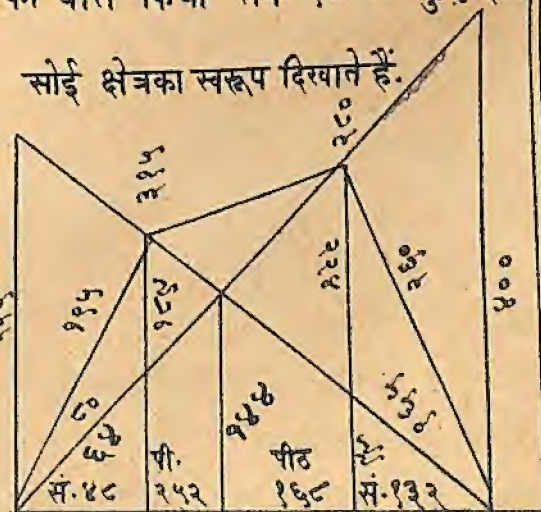 सोई क्षेत्रका स्वरूप दिखाते हैं.
३१५
२८०
१९५
१८९
२२४
२६०
४००
१४४
सं.४८
पी.
२५२
पीठ
१६८
सं.१३२